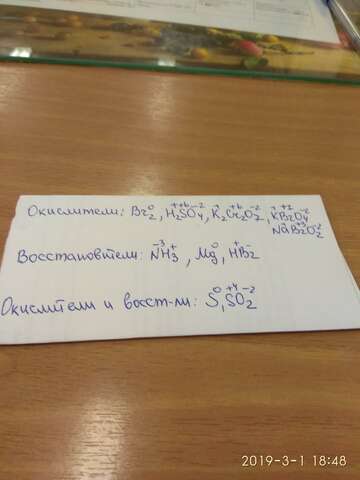 Окислители: Br₂⁰, H₂⁺S⁺⁶O₄⁻², K₂⁺Cr₂⁺⁶O₇⁻², K⁺Br⁺⁷O₄⁻²
NaBr⁺³O₂⁻²
Восстановители: N⁻³H₃⁺, Mg⁰, H⁺Br⁻
Окислители и восст-ли: S⁰, S⁺⁴O₂⁻²
2019-3-1 18:48